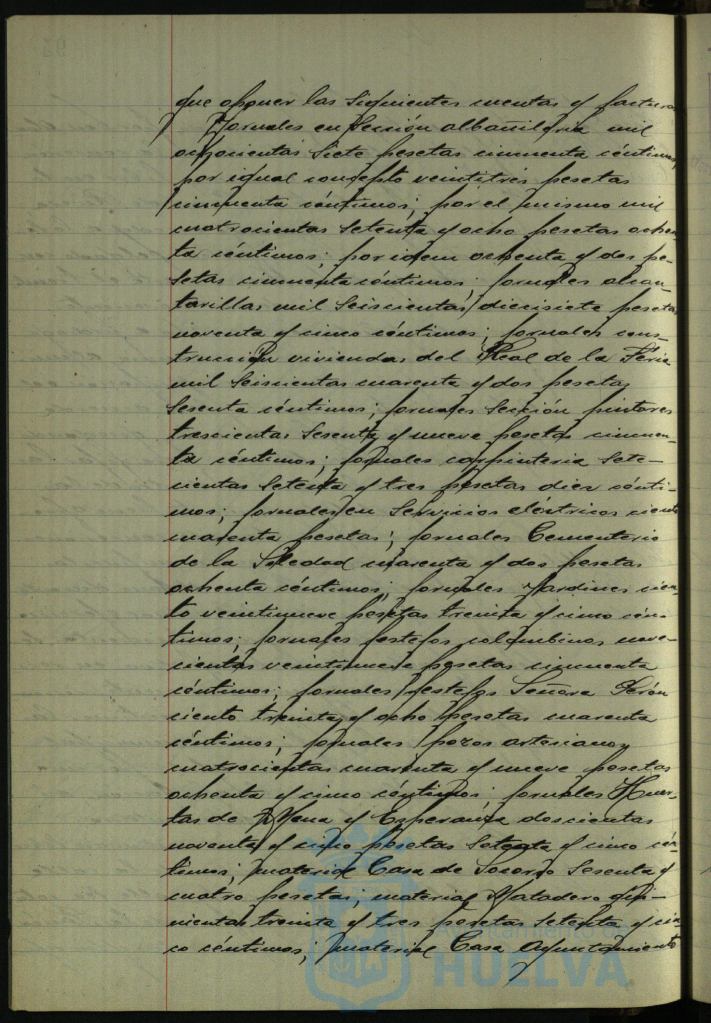 que oponer las siguientes cuentas y facturas
Jornales en Sección albañilería mil
ochocientas siete pesetas cincuenta céntimos,
por igual concepto veintitrés pesetas
cincuenta céntimos; por el mismo mil
cuatrocientas setenta y ocho pesetas ochen-
ta céntimos; por idem ochenta y dos pe-
setas cincuenta céntimos; jornales alcan-
tarillas mil seiscientas diecisiete pesetas
noventa y cinco céntimos; jornales cons-
trucción viviendas del Real de la Feria
mil seiscientas cuarenta y dos pesetas
sesenta céntimos; jornales Sección pintores
trescientas sesenta y nueve pesetas cincuen-
ta céntimos; jornales carpintería sete-
cientas setenta y tres pesetas diez cénti-
mos; jornales en Servicios eléctricos ciento
cuarenta pesetas; jornales Cementerio
de la Soledad cuarenta y dos pesetas
ochenta céntimos; jornales Jardines cien-
to veintinueve pesetas treinta y cinco cén-
timos; jornales festejos colombinos nove-
cientas veintinueve pesetas cincuenta
céntimos; jornales festejos Señora Perón
ciento treinta y ocho pesetas cuarenta
céntimos; jornales pozos artesianos
cuatrocientas cuarenta y nueve pesetas
ochenta y cinco céntimos; jornales Huer-
tas de Mena y Esperanza doscientas
noventa y cinco pesetas setenta y cinco cén-
timos; material Casa de Socorro sesenta y
cuatro pesetas; material Matadero qui-
nientas treinta y tres pesetas setenta y cin-
co céntimos; material Casa Ayuntamiento
HUELVA